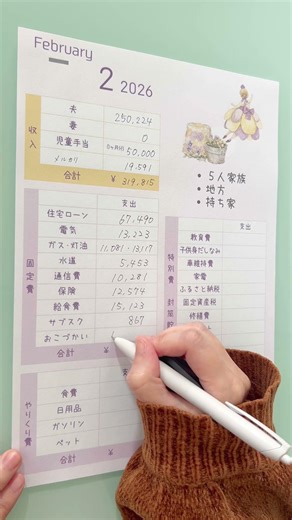 February
2 2026
収入
夫 250,224
妻 0
児童手当 0〜 50,000
メルカリ 19,591
合計 ¥ 319,815
・5人家族
・地方
・持ち家
固定費
支出
住宅ローン 67,490
電気 13,223
ガス・灯油 11,081・13,117
水道 5,453
通信費 10,281
保険 12,574
給食費 15,123
サブスク 867
おこづかい
合計 ¥
特別費
支出
教育費
子供身だしなみ
車維持費
家電
ふるさと納税
固定資産税
修繕費
やりくり費
支
食費
日用品
ガソリン
ペット
合計 ¥